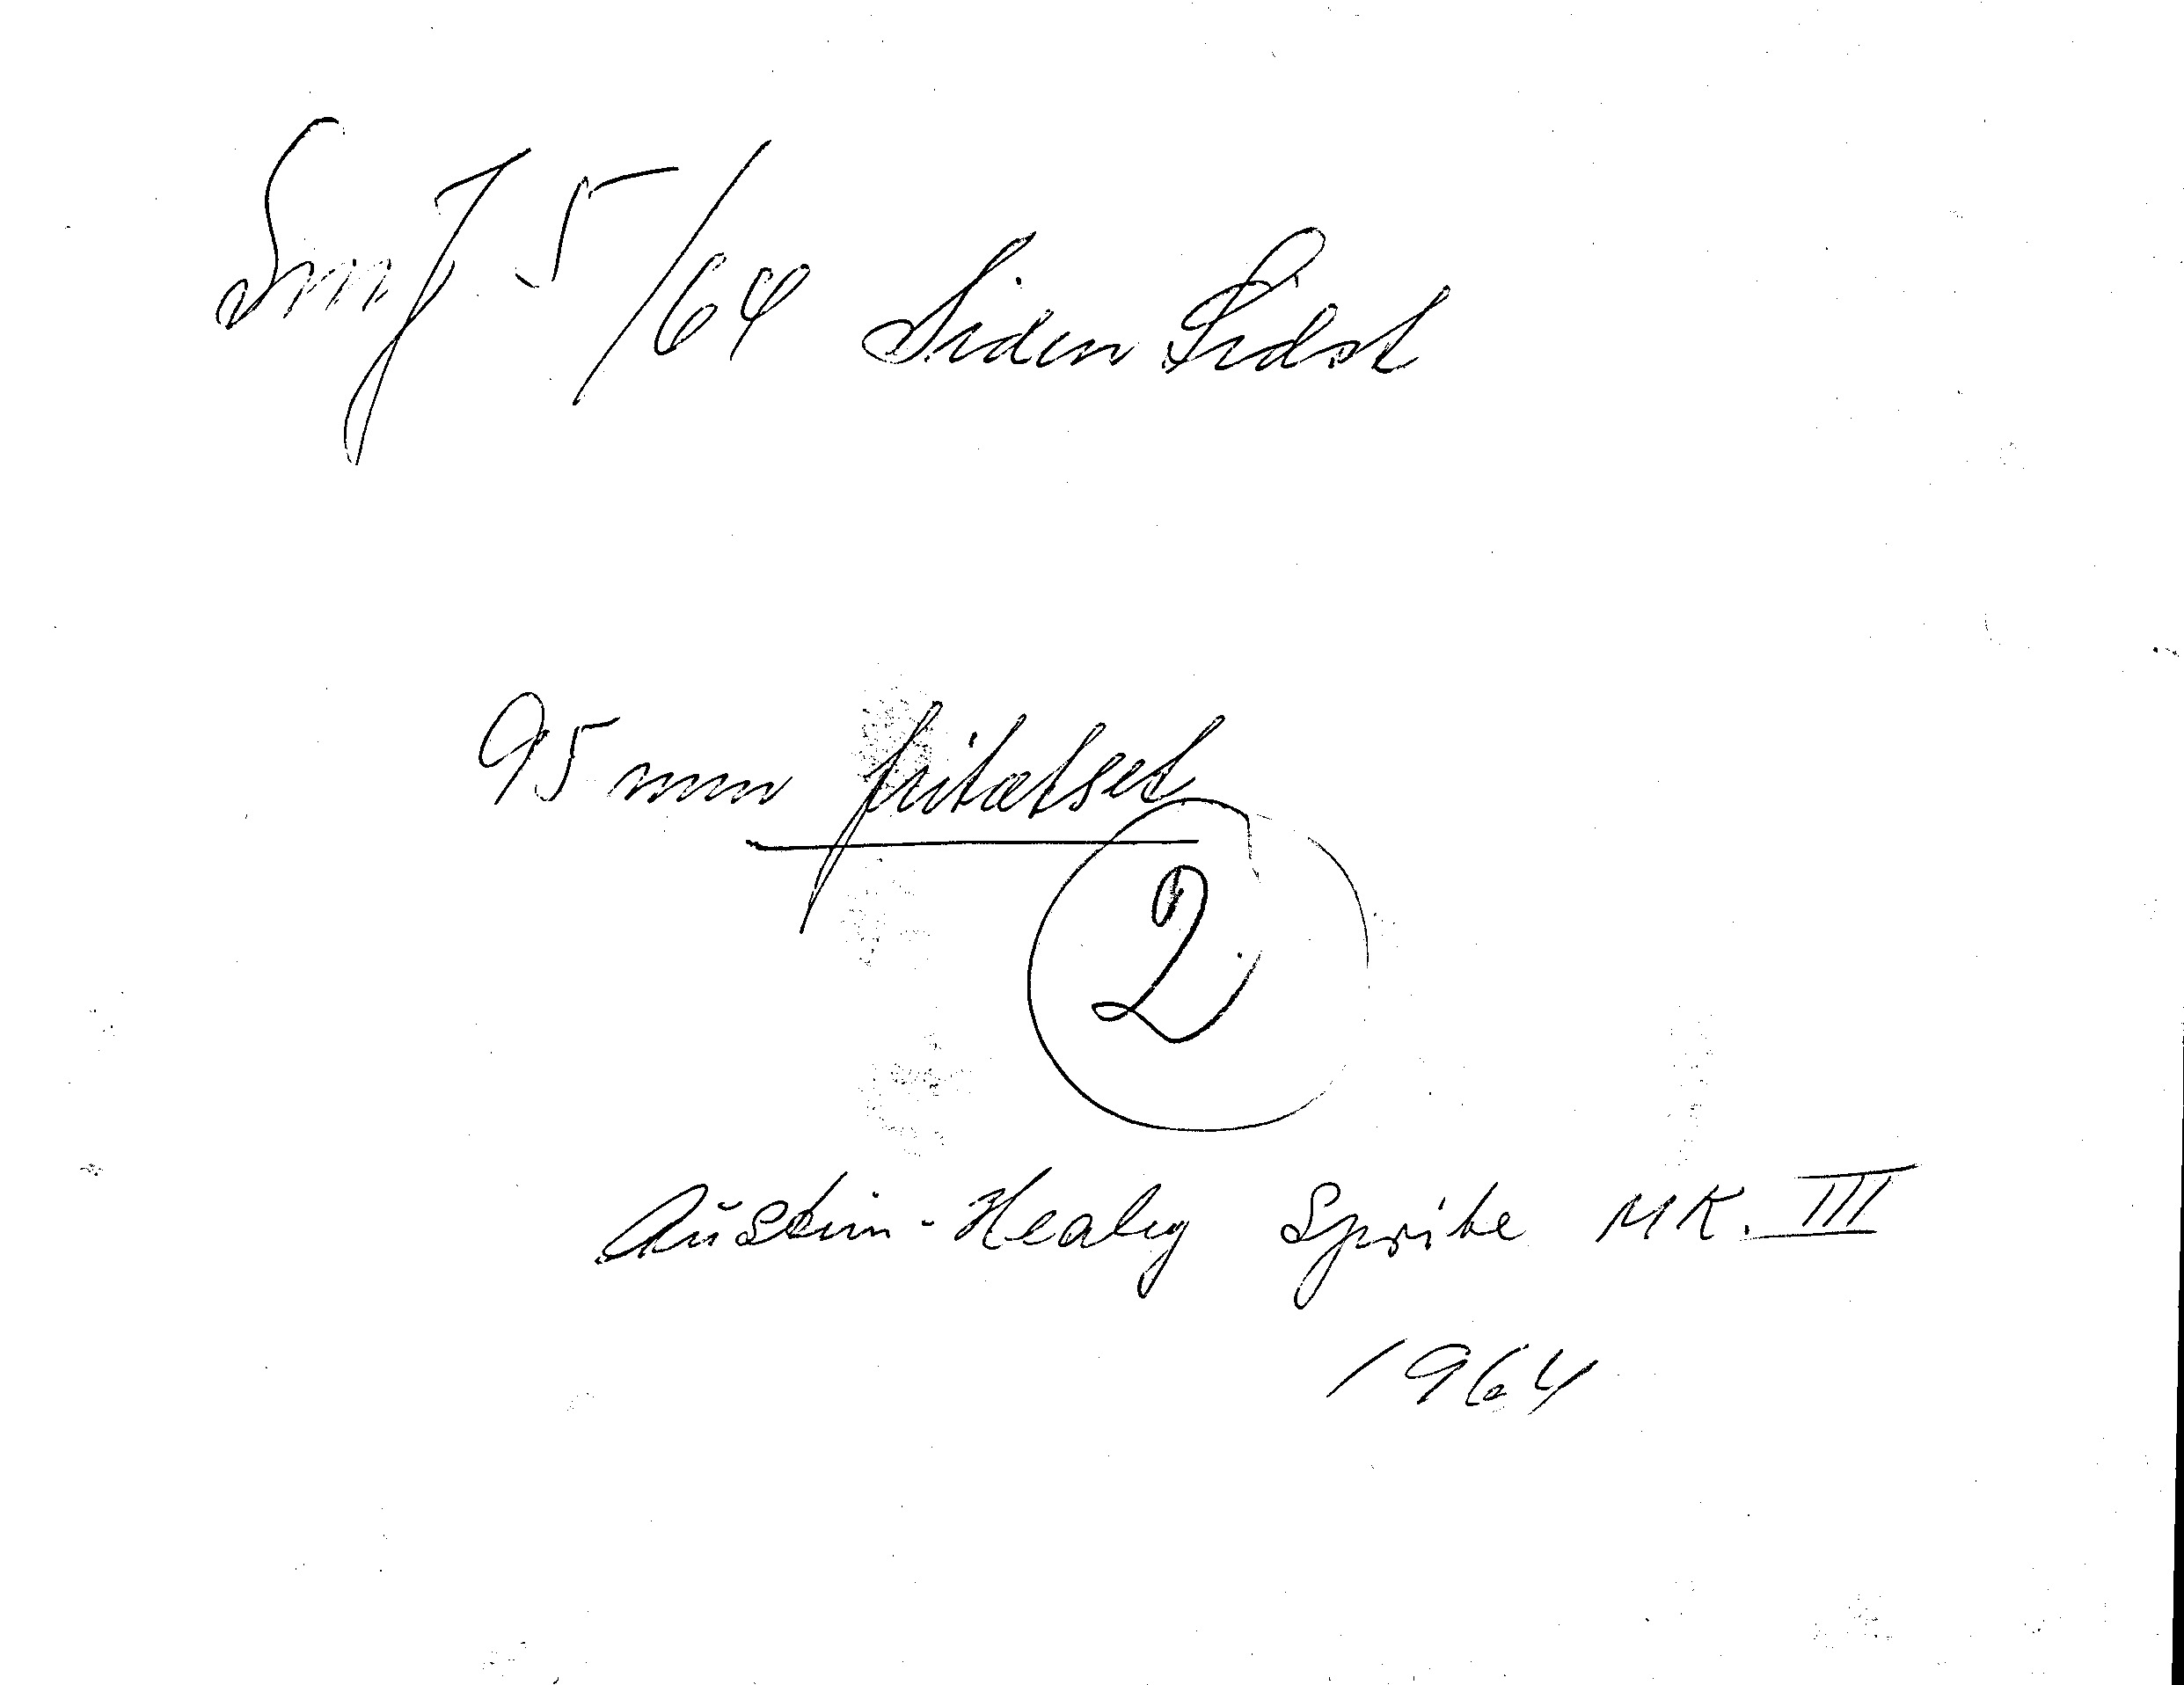 SmJ 5/64 Siden Sidst
95 mm fritatset
2
Austin-Healey Sprite MK. III
1964